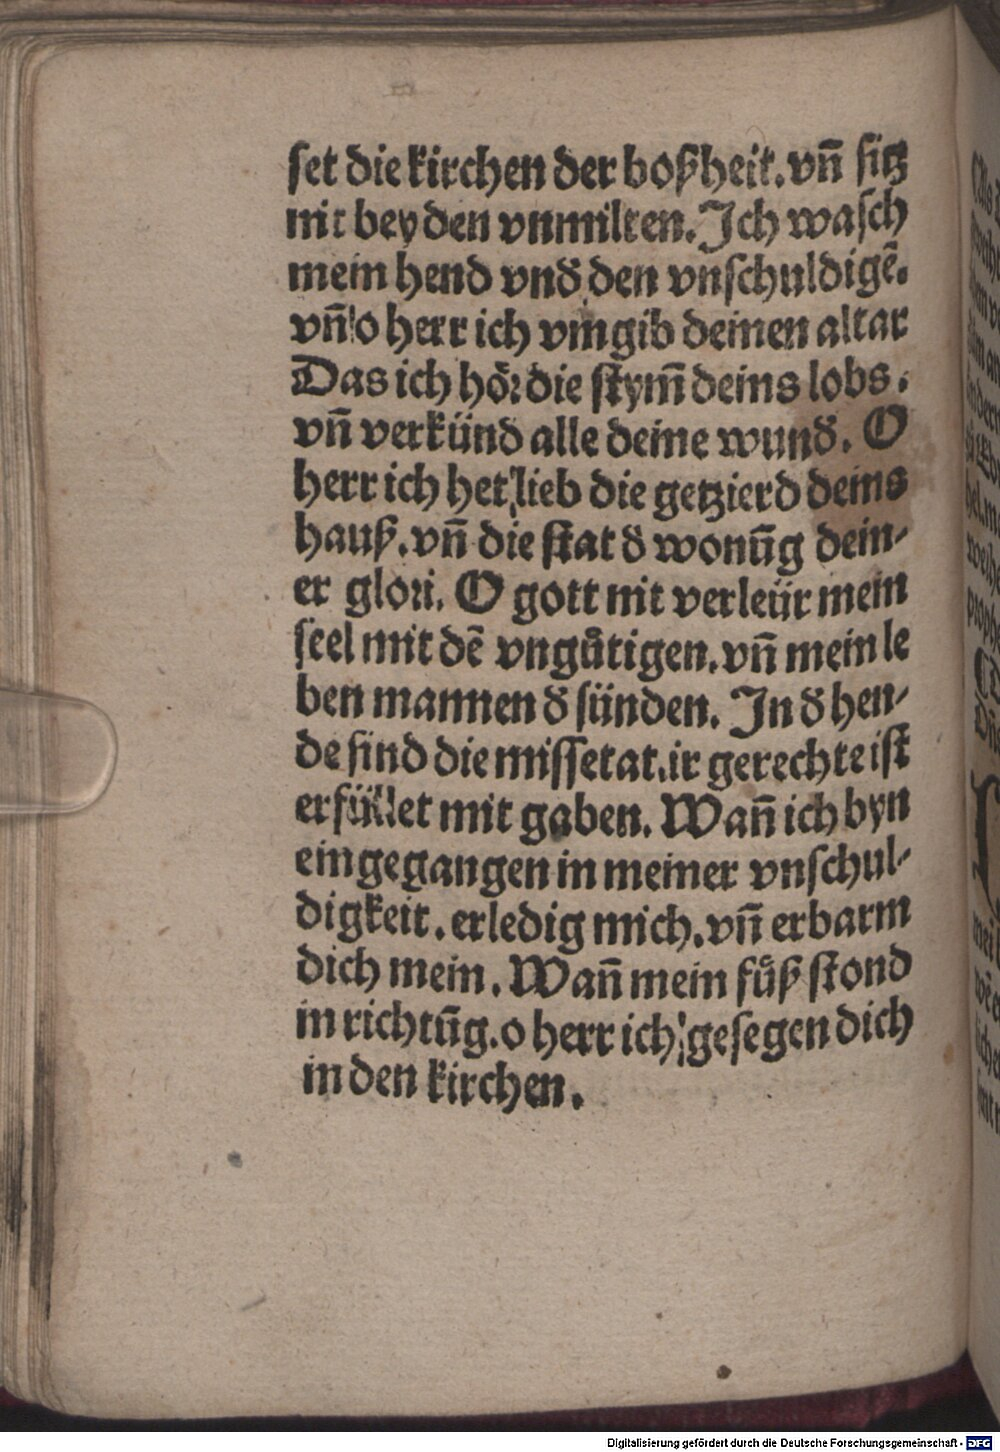 set die kirchen der boßheit. vñ sitz
nit bey den vnmilten. Ich wasch
mein hend vnd den vnschuldigẽ.
vñ o herr ich vmgib deinen altar
Das ich hör die stym̃ deins lobs.
vñ verkünd alle deine wund. O
herr ich het lieb die getzierd deins
hauß. vñ die stat d wonũg dein-
er glori. O gott nit verleür mein
seel mit dẽ vngůtigen. vñ mein le
ben mannen d sünden. In d hen-
de sind die missetat. ir gerechte ist
erfüllet mit gaben. Wañ ich byn
eingegangen in meiner vnschul-
digkeit. erledig mich. vñ erbarm
dich mein. Wañ mein fůß stond
in richtũg. o herr ich gesegen dich
in den kirchen.
Digitalisierung gefördert durch die Deutsche Forschungsgemeinschaft - DFG